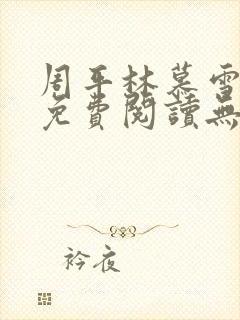 周平林慕雪
免費閱讀無
衿夜